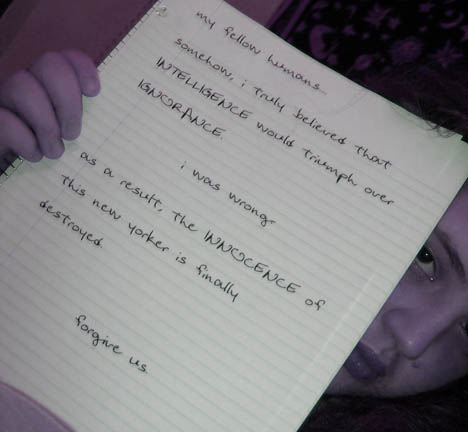 my fellow humans...
somehow, i truly believed that
INTELLIGENCE would triumph over
IGNORANCE.
i was wrong.
as a result, the INNOCENCE of
this new yorker is finally
destroyed.
forgive us.